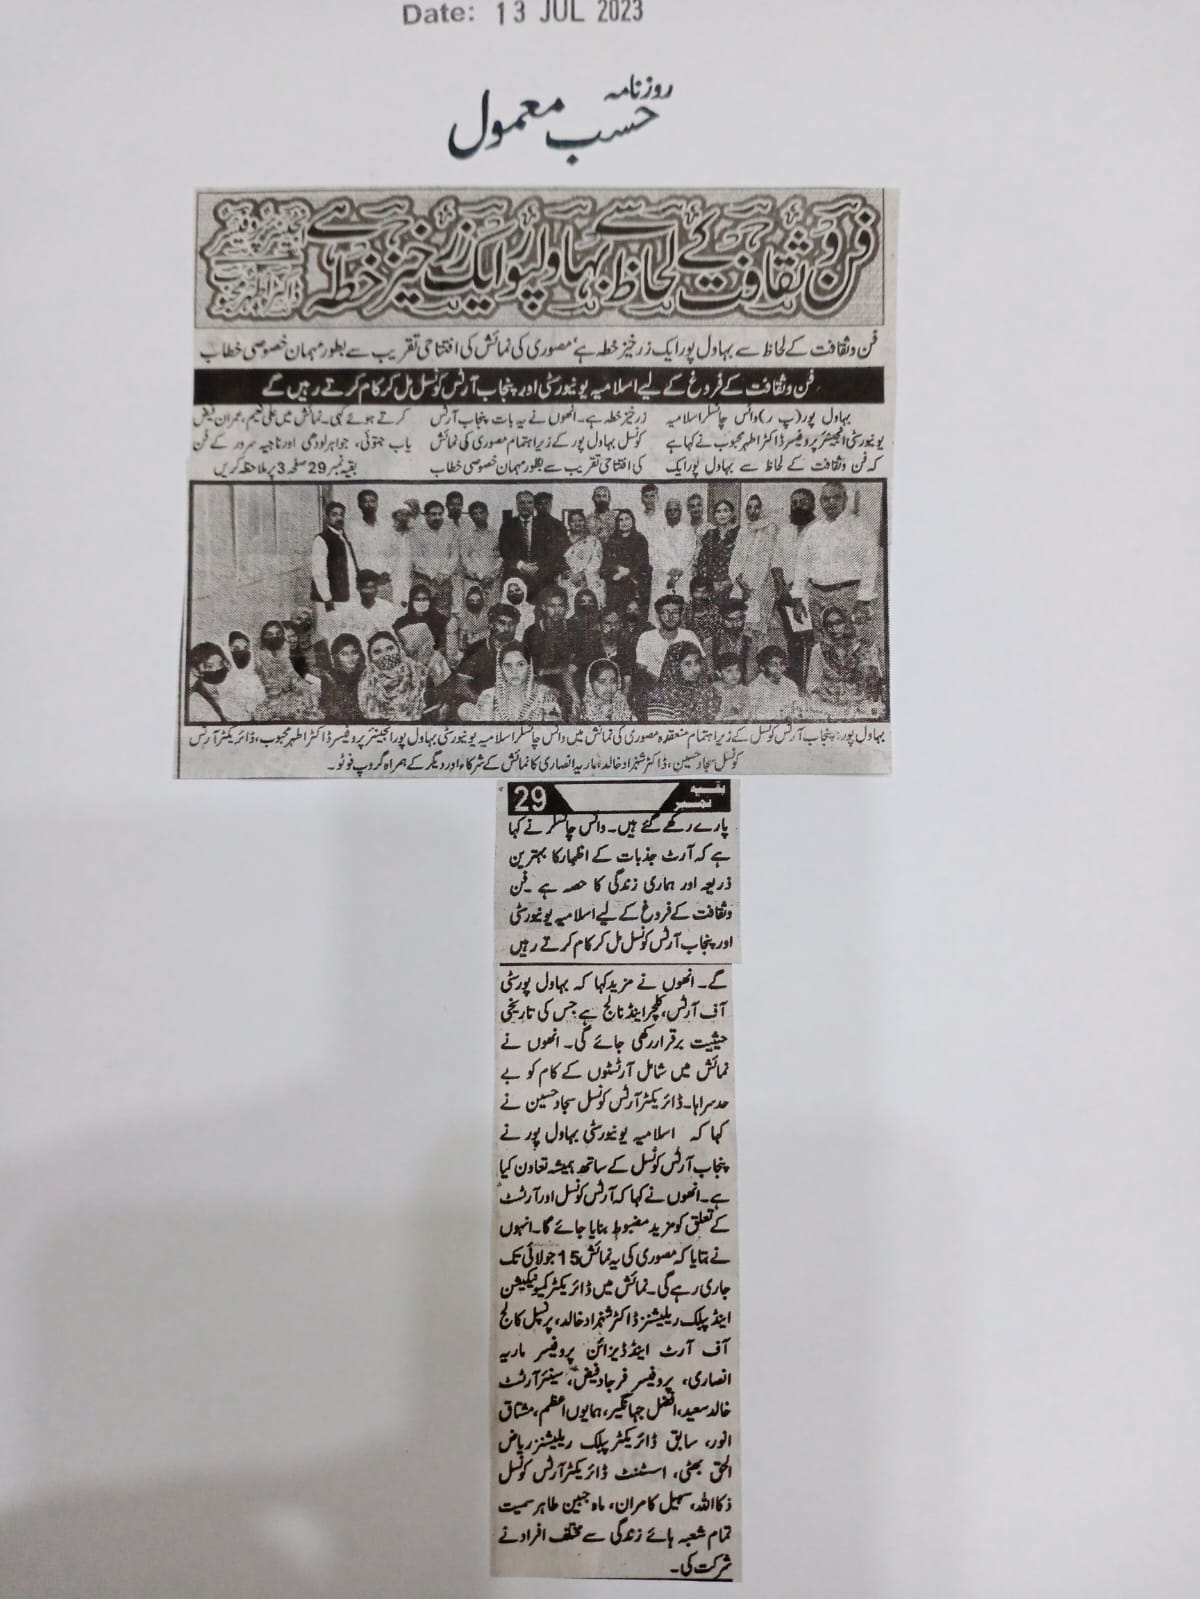 Date: 13 JUL 2023
روزنامہ
حسب معمول
فن و ثقافت کے لحاظ سے بہاولپور ایک زرخیز خطہ ہے
انجینئر پروفیسر
ڈاکٹر اطہر محبوب
فن و ثقافت کے لحاظ سے بہاول پور ایک زرخیز خطہ ہے، مصوری کی نمائش کی افتتاحی تقریب سے بطور مہمان خصوصی خطاب
فن و ثقافت کے فروغ کے لیے اسلامیہ یونیورسٹی اور پنجاب آرٹس کونسل مل کر کام کرتے رہیں گے
بہاول پور (پ ر) وائس چانسلر اسلامیہ
یونیورسٹی انجینئر پروفیسر ڈاکٹر اطہر محبوب نے کہا ہے
کہ فن و ثقافت کے لحاظ سے بہاول پور ایک
زرخیز خطہ ہے۔ انھوں نے یہ بات پنجاب آرٹس
کونسل بہاول پور کے زیر اہتمام مصوری کی نمائش
کی افتتاحی تقریب سے بطور مہمان خصوصی خطاب
کرتے ہوئے کہی۔ نمائش میں علی نعیم، عمران فیض
یاب جتوئی، جواہر لودھی اور ناجیہ سرور کے فن
بقیہ نمبر 29 صفحہ 3 پر ملاحظہ کریں
بہاول پور: پنجاب آرٹس کونسل کے زیر اہتمام منعقدہ مصوری کی نمائش میں وائس چانسلر اسلامیہ یونیورسٹی بہاول پور انجینئر پروفیسر ڈاکٹر اطہر محبوب، ڈائریکٹر آرٹس
کونسل سجاد حسین، ڈاکٹر شہزاد خالد، ماریہ انصاری کا نمائش کے شرکاء اور دیگر کے ہمراہ گروپ فوٹو۔
بقیہ نمبر 29
پارے رکھے گئے ہیں۔ وائس چانسلر نے کہا
ہے کہ آرٹ جذبات کے اظہار کا بہترین
ذریعہ اور ہماری زندگی کا حصہ ہے۔ فن
و ثقافت کے فروغ کے لیے اسلامیہ یونیورسٹی
اور پنجاب آرٹس کونسل مل کر کام کرتے رہیں
گے۔ انھوں نے مزید کہا کہ بہاول پور سٹی
آف آرٹس، کلچر اینڈ نالج ہے جس کی تاریخی
حیثیت برقرار رکھی جائے گی۔ انھوں نے
نمائش میں شامل آرٹسٹوں کے کام کو بے
حد سراہا۔ ڈائریکٹر آرٹس کونسل سجاد حسین نے
کہا کہ اسلامیہ یونیورسٹی بہاول پور نے
پنجاب آرٹس کونسل کے ساتھ ہمیشہ تعاون کیا
ہے۔ انھوں نے کہا کہ آرٹس کونسل اور آرٹسٹ
کے تعلق کو مزید مضبوط بنایا جائے گا۔ انہوں
نے بتایا کہ مصوری کی یہ نمائش 15 جولائی تک
جاری رہے گی۔ نمائش میں ڈائریکٹر کمیونیکیشن
اینڈ پبلک ریلیشنز ڈاکٹر شہزاد خالد، پرنسپل کالج
آف آرٹ اینڈ ڈیزائن پروفیسر ماریہ
انصاری، پروفیسر فرجاد فیض، سینئر آرٹسٹ
خالد سعید، افضل جہانگیر، ہمایوں اعظم، مشتاق
انور، سابق ڈائریکٹر پبلک ریلیشنز ریاض
الحق بھٹی، اسسٹنٹ ڈائریکٹر آرٹس کونسل
ذکااللہ، سہیل کامران، ماہ جبین طاہر سمیت
تمام شعبہ ہائے زندگی سے مختلف افراد نے
شرکت کی۔